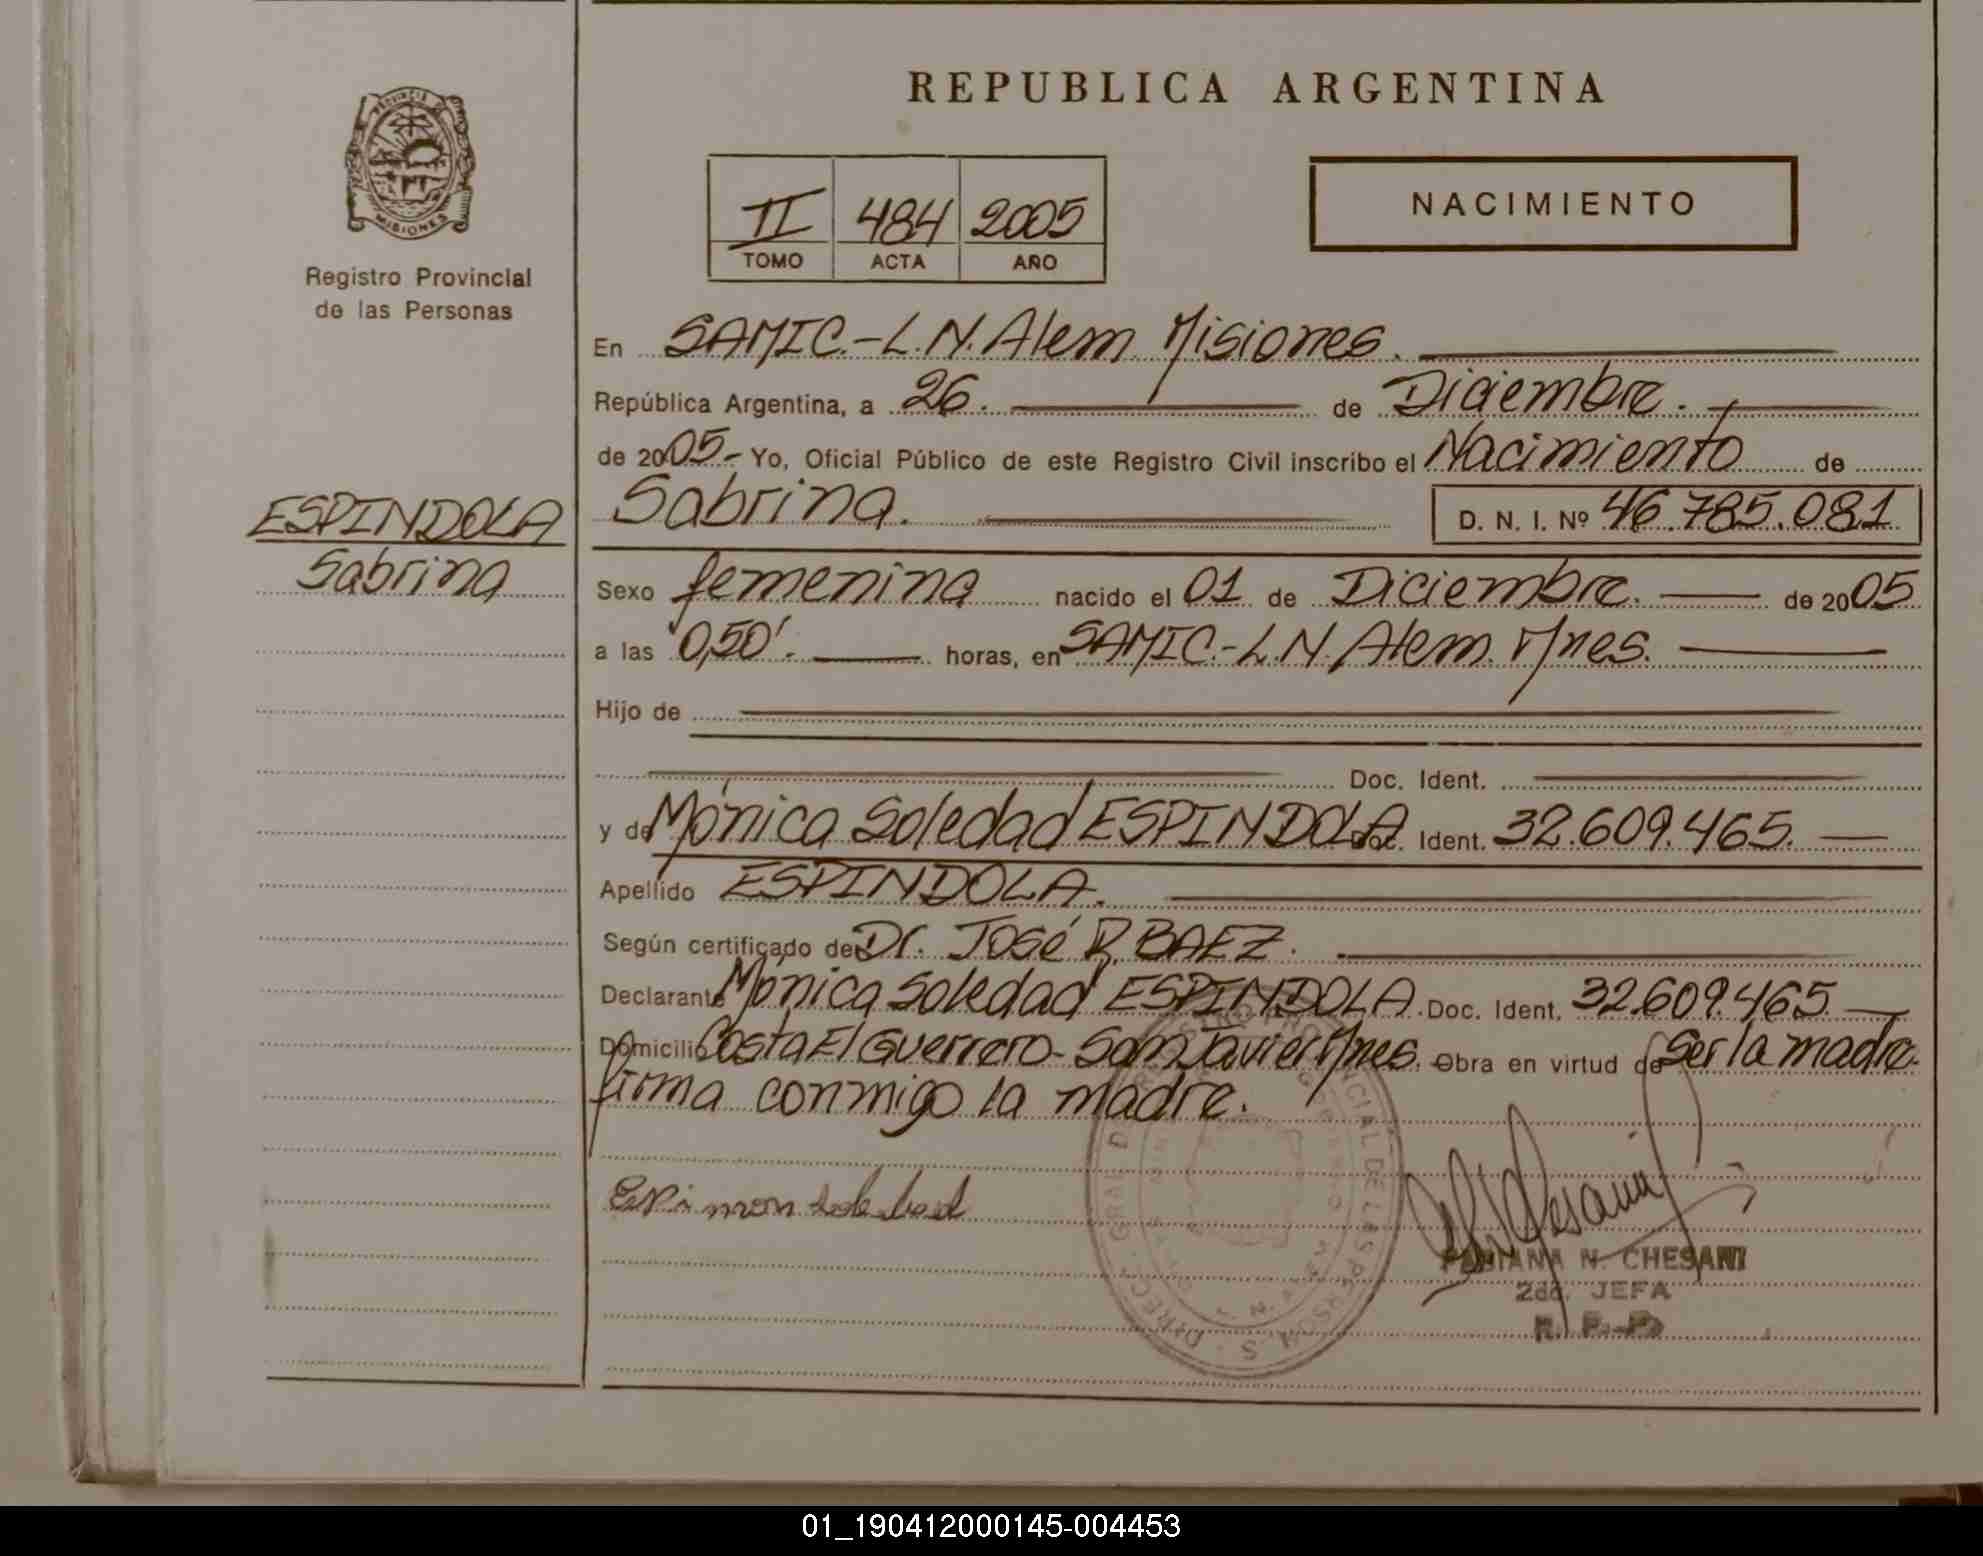 REPUBLICA ARGENTINA
PROVINCIA DE
MISIONES
Registro Provincial
de las Personas
II 484 2005
TOMO ACTA AÑO
NACIMIENTO
En SAMIC.-L.N. Alem Misiones.
República Argentina, a 26. de Diciembre.
de 2005.- Yo, Oficial Público de este Registro Civil inscribo el Nacimiento de
Sabrina. D. N. I. Nº 46.785.081
ESPINDOLA
Sabrina
Sexo femenina nacido el 01 de Diciembre. de 2005
a las 0,50'. horas, en SAMIC.-L.N. Alem. Mnes.
Hijo de
Doc. Ident.
y de Mónica Soledad ESPINDOLA Doc. Ident. 32.609.465.
Apellido ESPINDOLA.
Según certificado de Dr. José R. BAEZ.
Declarante Mónica Soledad ESPINDOLA. Doc. Ident. 32.609.465.
Domicilio Costa El Guerrero- San Javier Mnes. Obra en virtud de Ser la madre.
firma conmigo la madre.
CHESANI
2da. JEFA
R. P. P.
01_190412000145-004453